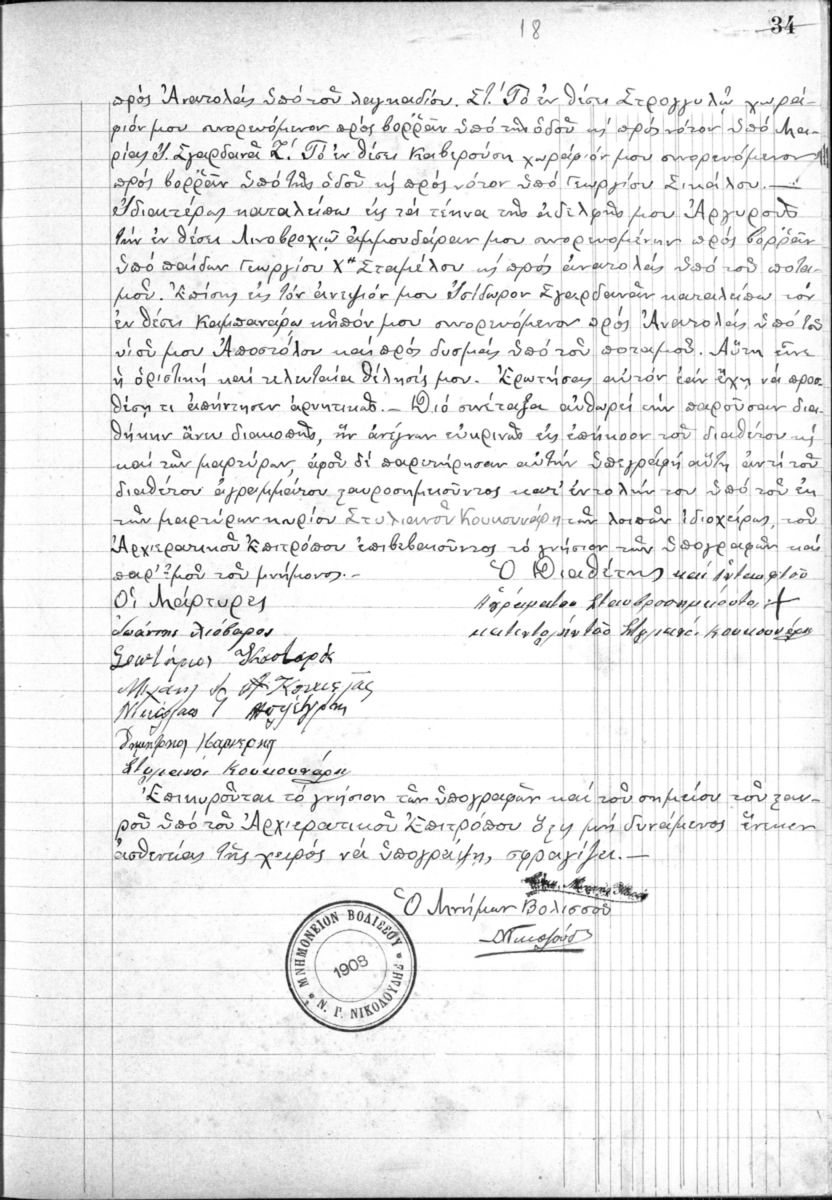 18
34
πρὸς Ἀνατολὰς ὑπὸ τοῦ λαγκαδίου. ΣΤ.′ Τὸ ἐν θέσει Στρογγυλῷ χωρά-
φιόν μου συνορευόμενον πρὸς βορρᾶν ὑπὸ τῆς ὁδοῦ κ̀ πρὸς νότον ὑπὸ Μα-
ρίας Ι. Σγαρδανᾶ Ζ.′ Τὸ ἐν θέσει Καβερούση χωράφιόν μου συνορευόμενον
πρὸς βορρᾶν ὑπὸ τῆς ὁδοῦ κ̀ πρὸς νότον ὑπὸ Γεωργίου Σικάλου.—
Ἰδιαιτέρως καταλείπω εἰς τὰ τέκνα τῆς ἀδελφῆς μου Ἀργυροῦς
τὴν ἐν θέσει Λινοβροχιῷ ἀμμουδάραν μου συνορευομένην πρὸς βορρᾶν
ὑπὸ παίδων Γεωργίου Χ" Σταμέλου κ̀ πρὸς ἀνατολὰς ὑπὸ τοῦ ποτα-
μοῦ. Ἐπίσης εἰς τὸν ἀνεψιόν μου Ἰσίδωρον Σγαρδανᾶν καταλείπω τὸν
ἐν θέσει Καμπαναρίῳ κῆπόν μου συνορευόμενον πρὸς Ἀνατολὰς ὑπὸ τοῦ
υἱοῦ μου Ἀποστόλου καὶ πρὸς δυσμὰς ὑπὸ τοῦ ποταμοῦ. Αὕτη εἶνε
ἡ ὁριστικὴ καὶ τελευταία θέλησίς μου. Ἐρωτήσας αὐτὸν ἐὰν ἔχῃ νὰ προσ-
θέσῃ τι ἀπήντησεν ἀρνητικῶς.— Διὸ συνέταξα αὐθωρεὶ τὴν παροῦσαν δια-
θήκην ἄνευ διακοπῆς, ἣν ἀνέγνων εὐκρινῶς εἰς ἐπήκοον τοῦ διαθέτου κ̀
καὶ τῶν μαρτύρων, ἀφοῦ δὲ παρετήρησαν αὐτὴν ὑπεγράφη αὕτη ἀντὶ τοῦ
διαθέτου ἀγραμμάτου σταυροσημειοῦντος κατ' ἐντολήν του ὑπὸ τοῦ ἐκ
τῶν μαρτύρων κυρίου Στυλιανοῦ Κουκουνάρη τῶν λοιπῶν ἰδιοχείρως, τοῦ
Ἀρχιερατικοῦ Ἐπιτρόπου ἐπιβεβαιοῦντος τὸ γνήσιον τῶν ὑπογραφῶν καὶ
παρ' ἐμοῦ τοῦ μνήμονος.—
Ὁ Διαθέτης
Οἱ Μάρτυρες
Ἀγράματου Σταυροσημιούντος +
κατεντολήν του Στυλιανός Κουκουνάρης
Ἰωάννης
Σωτήριος
Νικόλαος
Δημήτριος
Στυλιανός Κουκουνάρης
Ἐπικυροῦται τὸ γνήσιον τῶν ὑπογραφῶν καὶ τοῦ σημείου τοῦ σταυ-
ροῦ ὑπὸ τοῦ Ἀρχιερατικοῦ Ἐπιτρόπου ὅστις μὴ δυνάμενος ἕνεκεν
ἀσθενείας τῆς χειρὸς νὰ ὑπογράψῃ, σφραγίζει.—
Ὁ Μνήμων Βολισσοῦ
ΜΝΗΜΟΝΕΙΟΝ ΒΟΛΙΣΣΟΥ
1908
Ν. Γ. ΝΙΚΟΛΟΥΔΗΣ